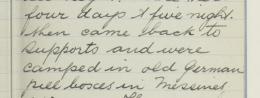 four days & five night.
then came back to
supports and were
camped in old German
pill boxes in Messines